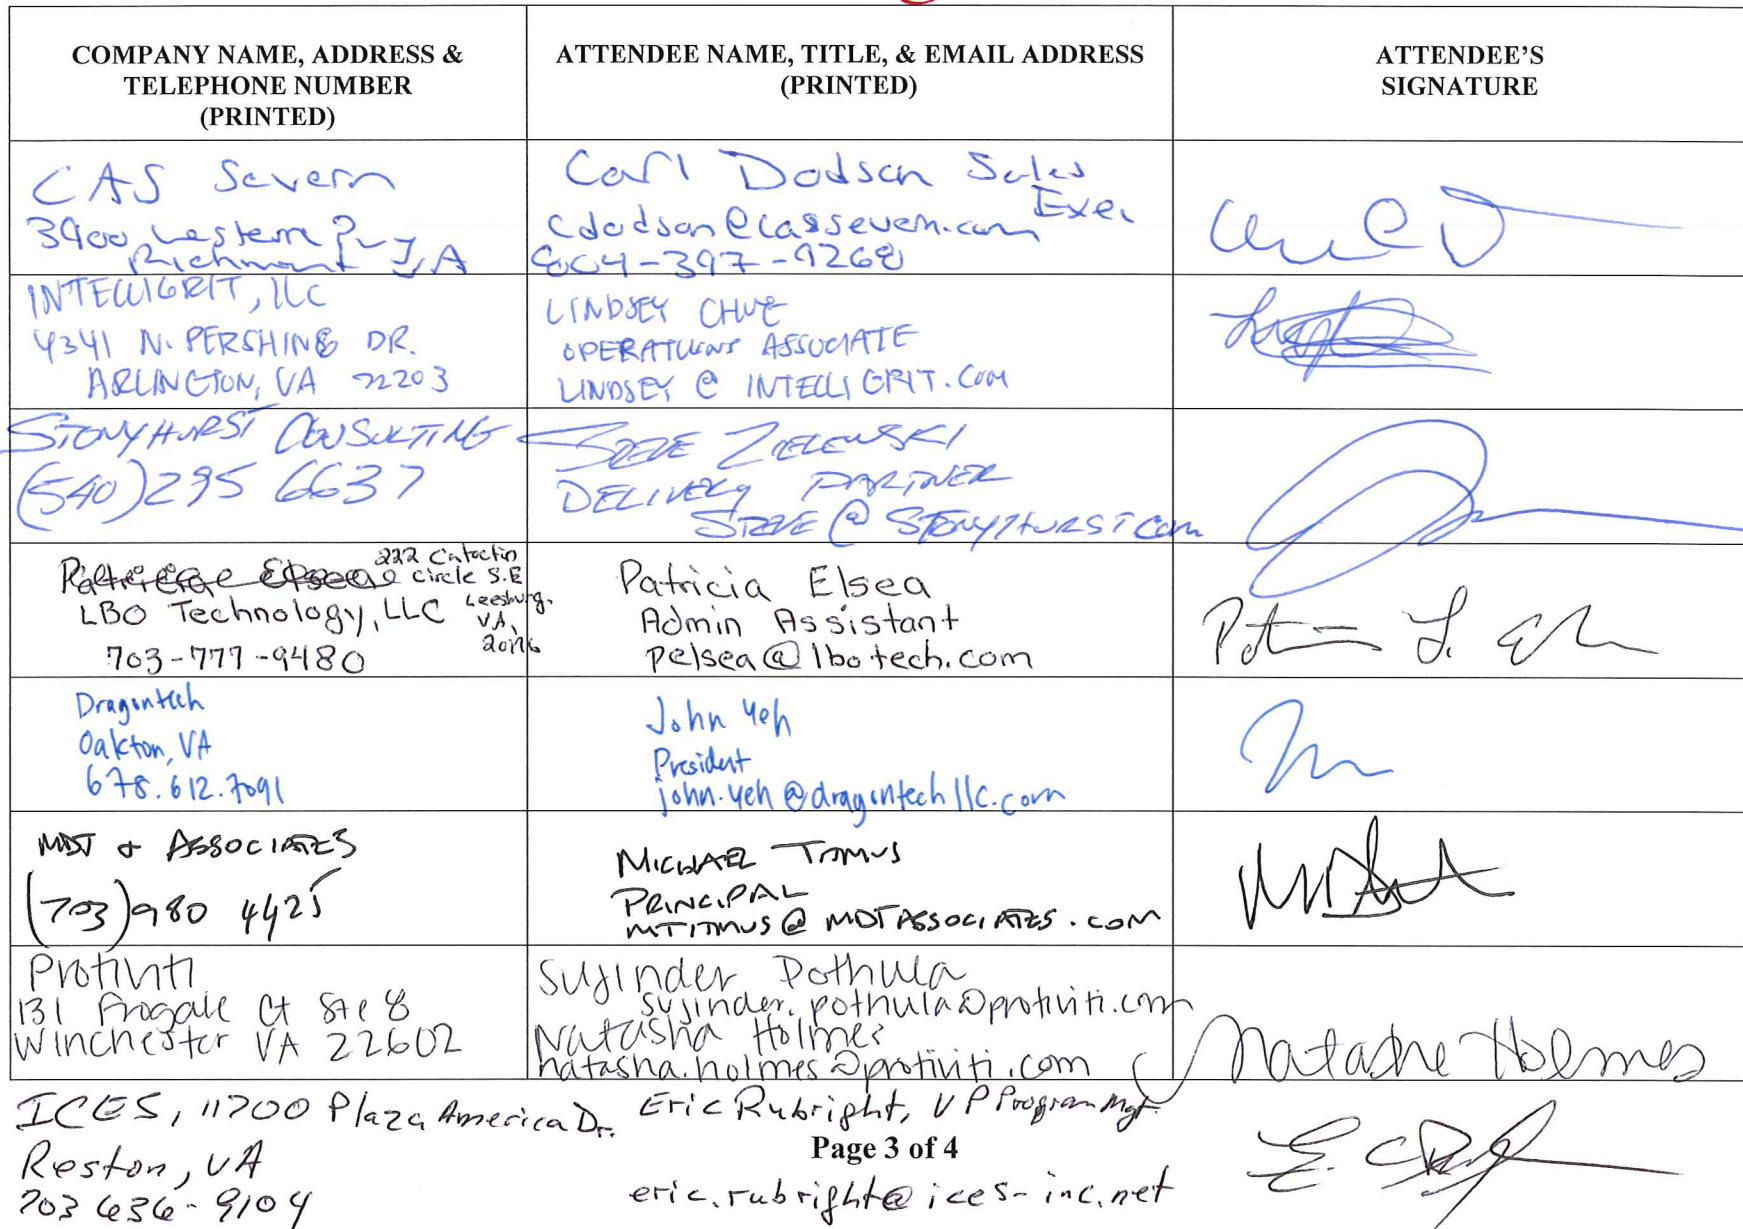 COMPANY NAME, ADDRESS &
TELEPHONE NUMBER
(PRINTED)
ATTENDEE NAME, TITLE, & EMAIL ADDRESS
(PRINTED)
ATTENDEE'S
SIGNATURE
CAS Severn
3900 Western
Richmond VA
Carl Dodson Sales
Exec
cdodson@cassevern.com
804-397-9268
INTELLIGRIT, LLC
4341 N. PERSHING DR.
ARLINGTON, VA 22203
LINDSEY
OPERATIONS ASSOCIATE
LINDSEY @ INTELLIGRIT.COM
STONYHURST CONSULTING
(540) 295 6637
STEVE ZIELEWSKI
DELIVERY PARTNER
STEVE @ STONYHURST.com
222 Catoctin
circle S.E
LBO Technology, LLC Leesburg,
VA,
703-777-9480
Patricia Elsea
Admin Assistant
pelsea@lbotech.com
Dragontech
Oakton, VA
678.612.7091
John Yeh
President
john.yeh@dragontechllc.com
MDT & ASSOCIATES
(703) 980 4425
MICHAEL TITMUS
PRINCIPAL
MTITMUS@MDTASSOCIATES.COM
Protiviti
131 Ct Ste 8
Winchester VA 22602
Sujinder Pothula
sujinder.pothula@protiviti.com
Natasha Holmes
natasha.holmes@protiviti.com
Natasha Holmes
ICES, 11700 Plaza America Dr.
Reston, VA
703 636-9104
Eric Rubright, VP Program Mgt.
Page 3 of 4
eric.rubright@ices-inc.net